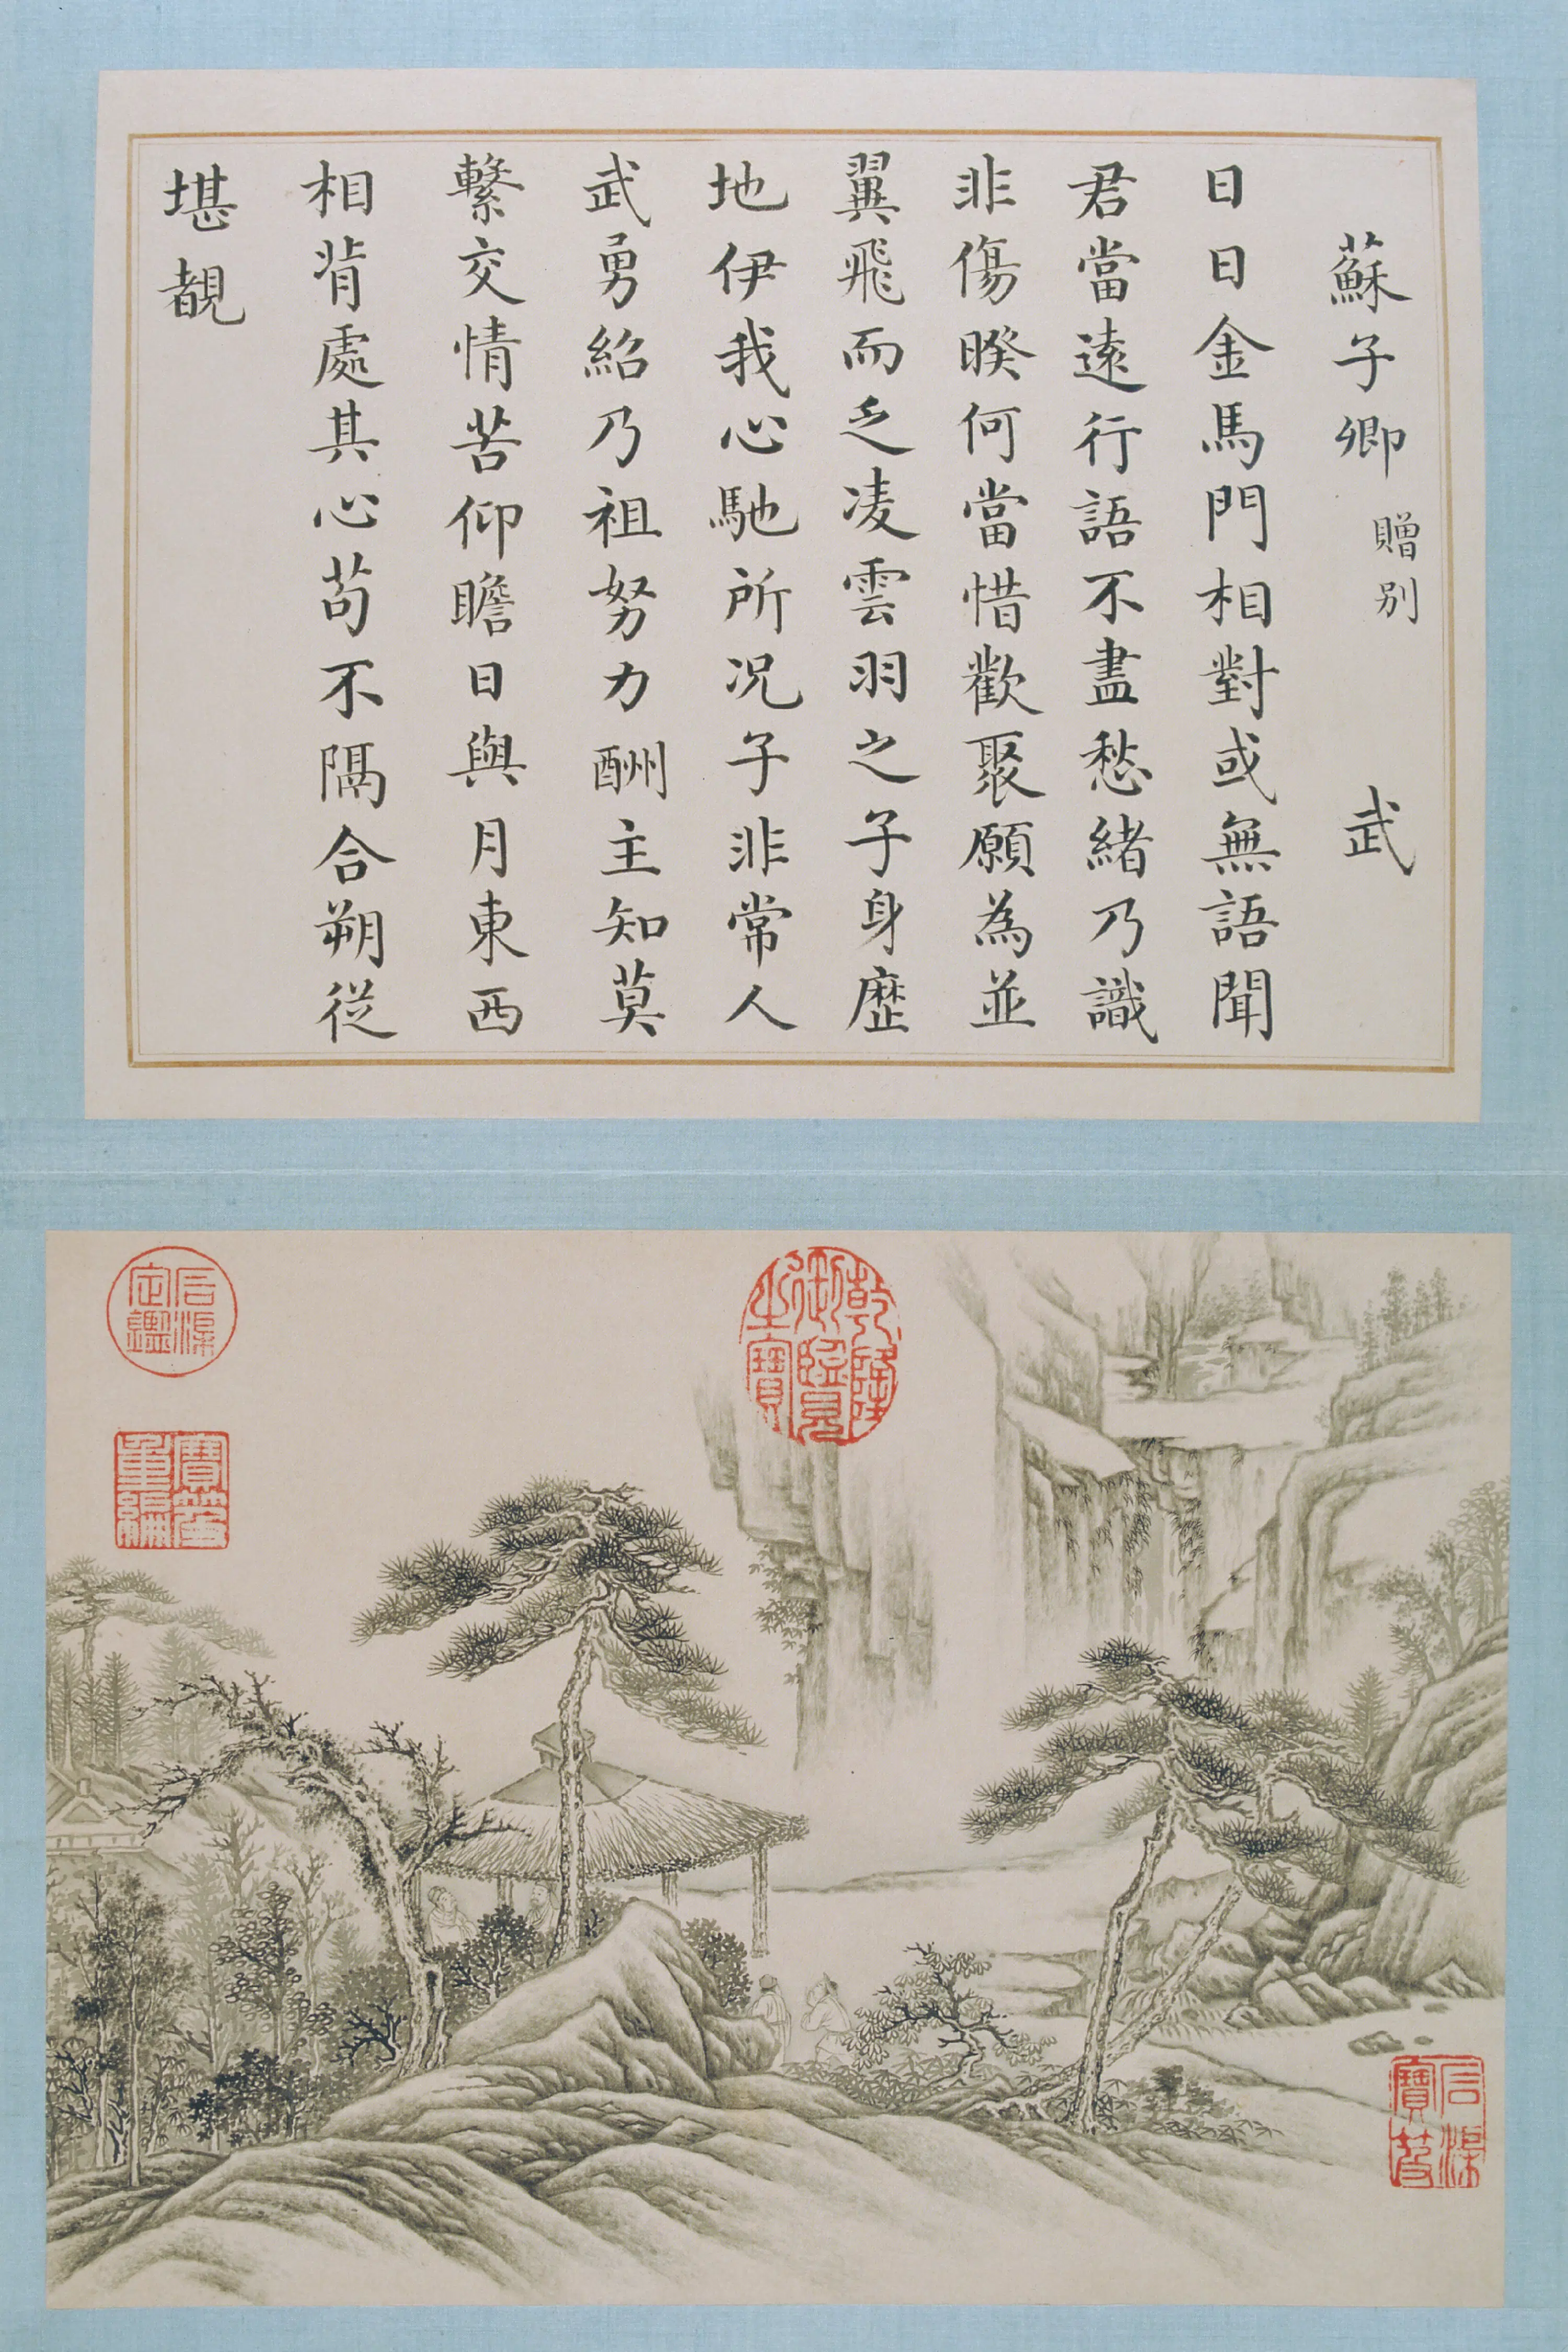 蘇子卿 贈別 武
日日金馬門相對或無語聞
君當遠行語不盡愁緒乃識
非傷暌何當惜歡聚願為並
翼飛而乏凌雲羽之子身歷
地伊我心馳所况子非常人
武勇紹乃祖努力酬主知莫
繫交情苦仰瞻日與月東西
相背處其心苟不隔合朔從
堪覩
乾隆御覽之寶
石渠定鑑
寶笈重編
石渠寶笈